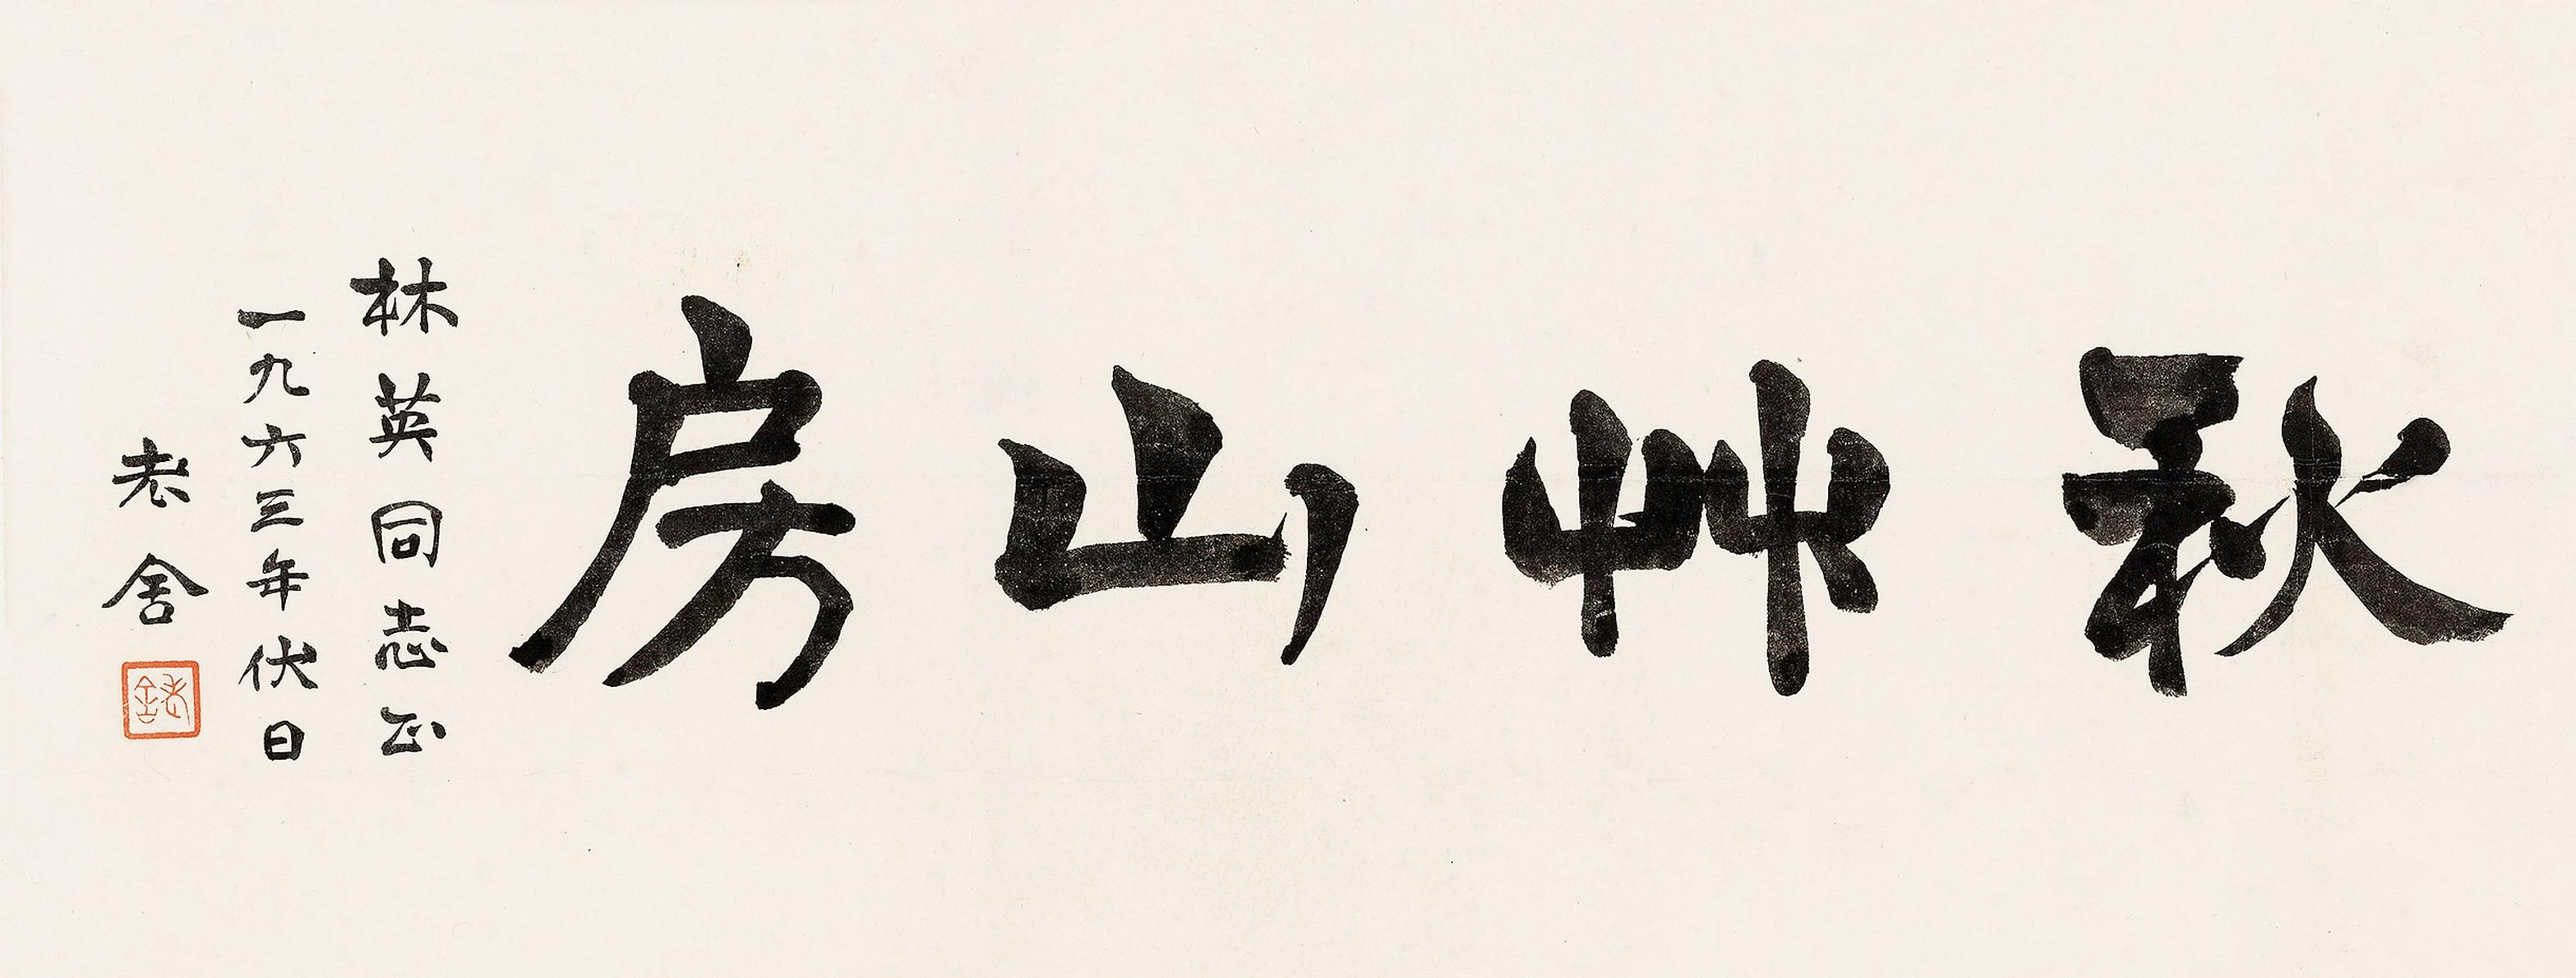 秋艸山房
林英同志正
一九六三年伏日
老舍
老舍